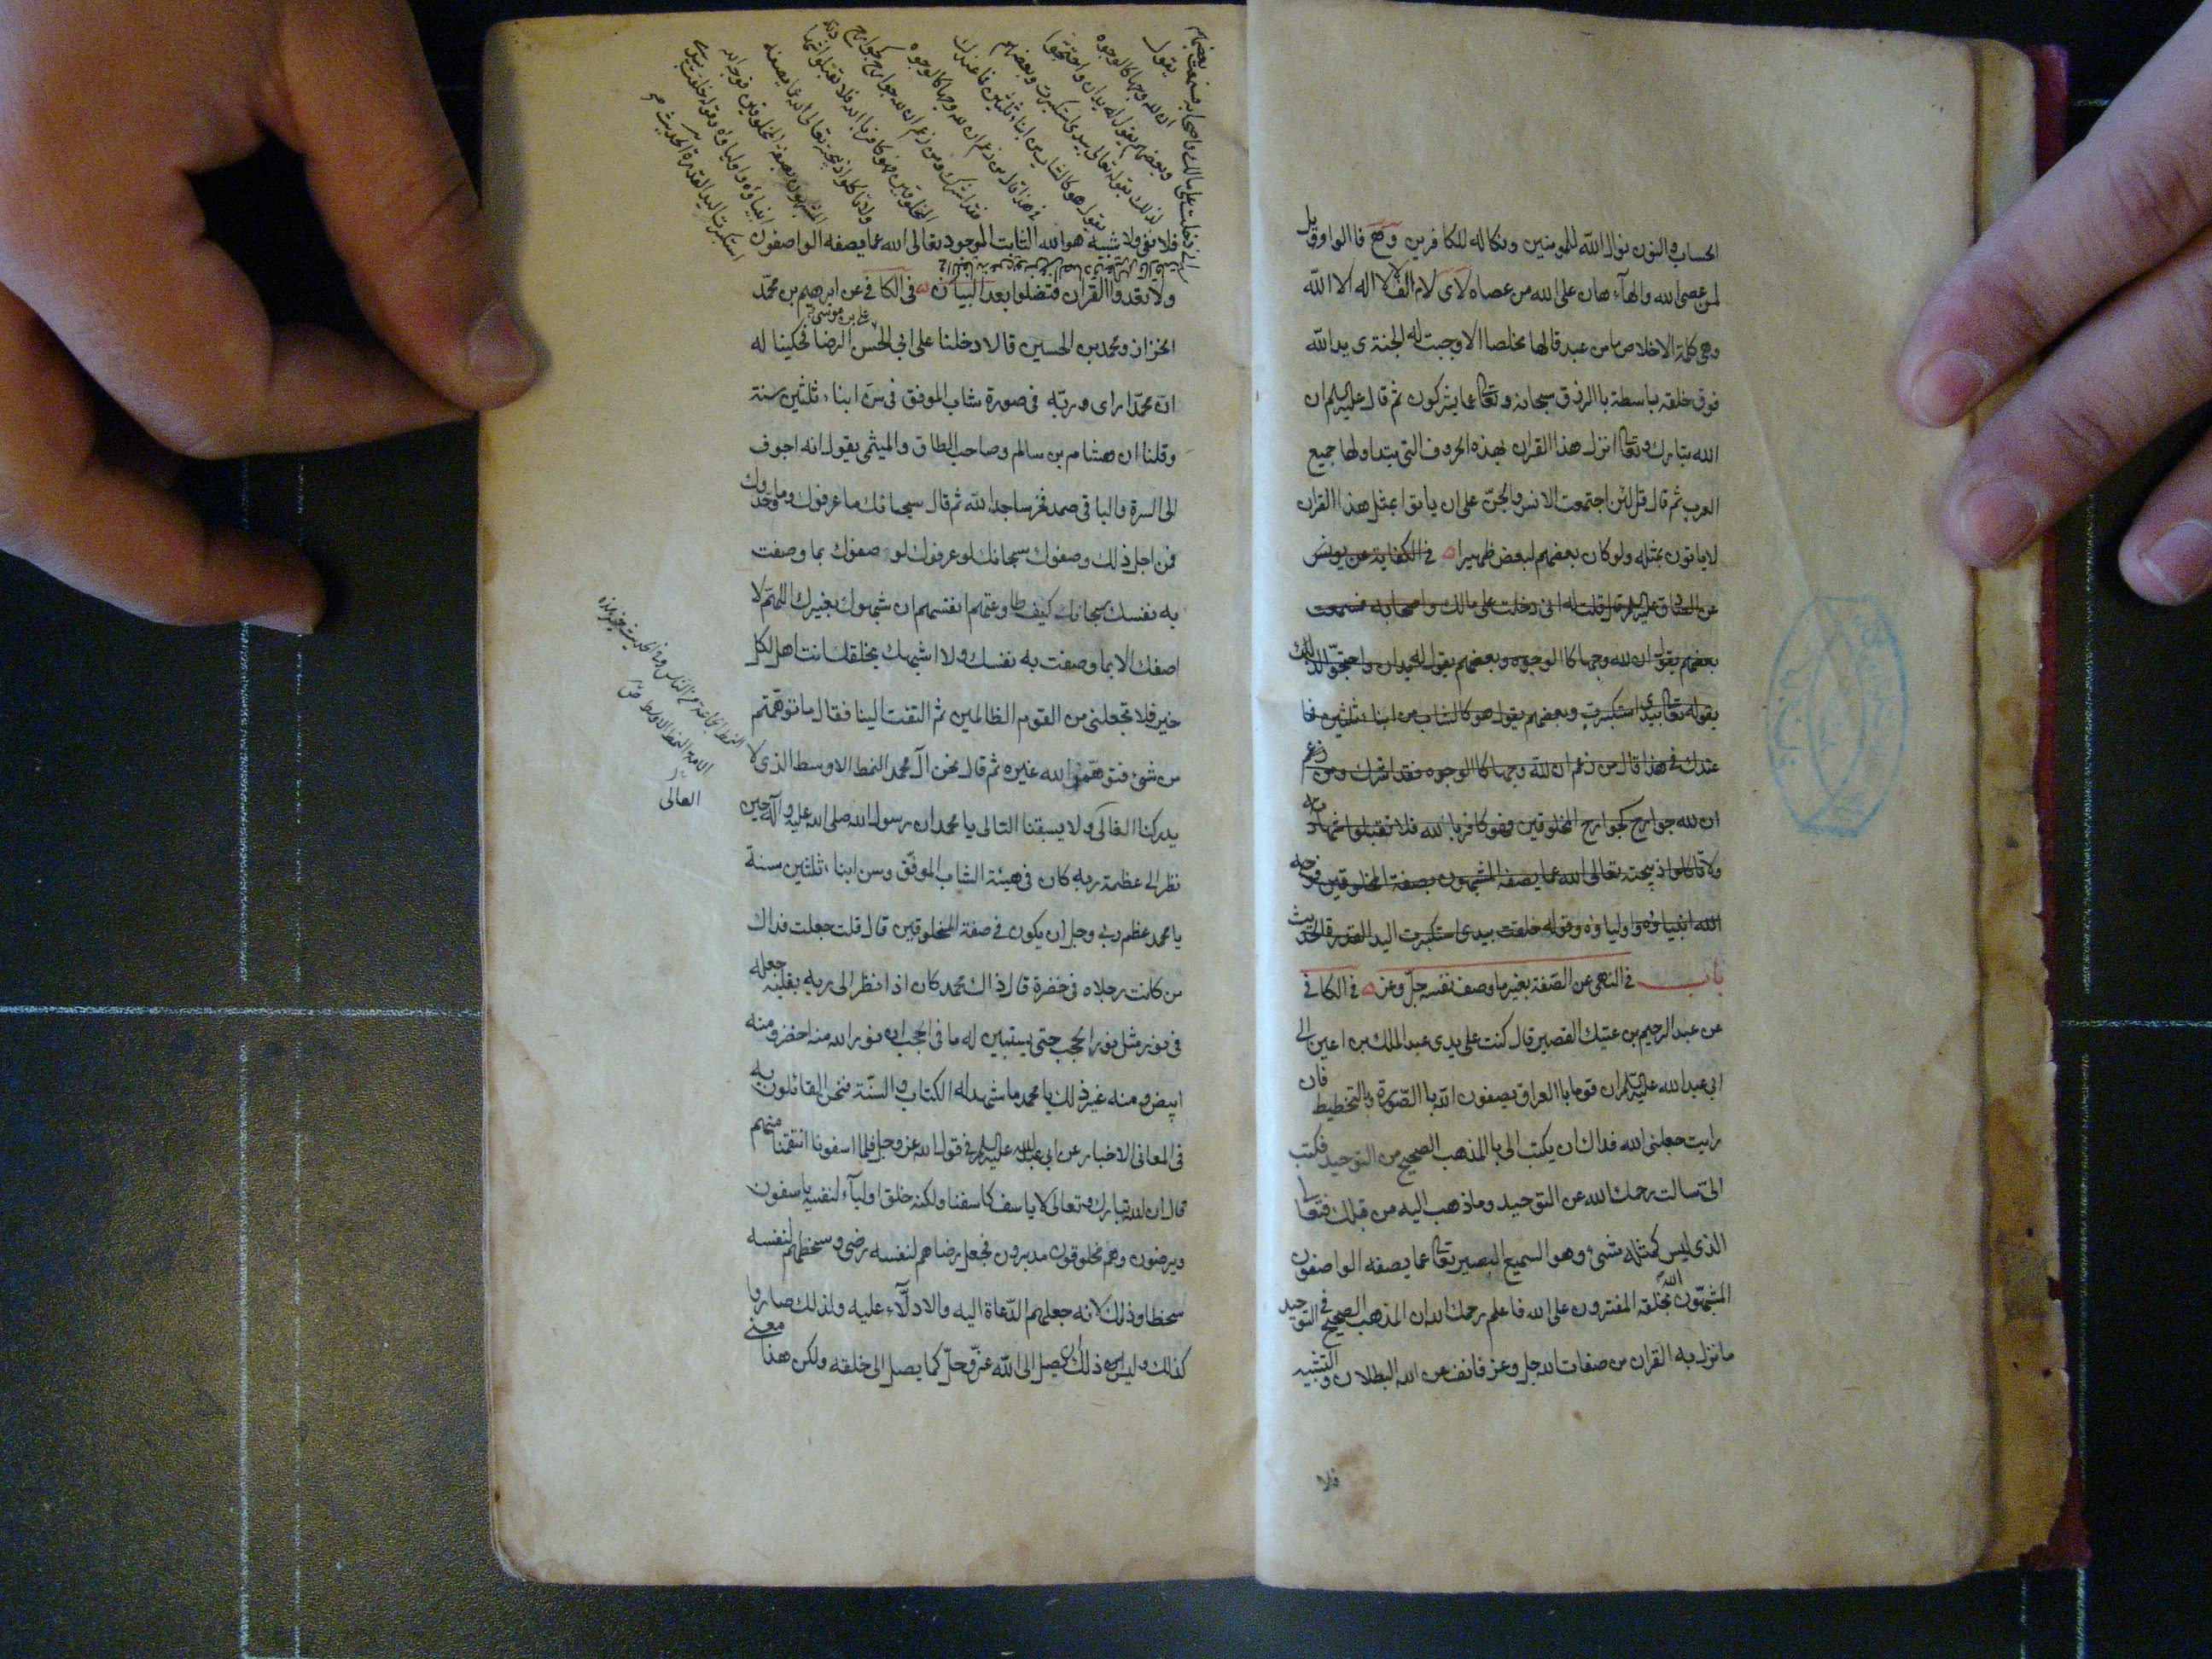 الحساب والنون نوال الله للمومنين ونكاله للكافرين وهي فالواو ويل
لمن عصى الله والهآء هان على الله من عصاه لاى لام الف لا اله الا الله
وهي كلمة الاخلاص ما من عبد قالها مخلصا الا وجبت له الجنة ى يد الله
فوق خلقه باسطة با الرزق سبحانه وتعا عما يشركون ثم قال عليه السلم ان
الله تبارك وتعا انزل هذا القران بهذه الحروف التي يتداولها جميع
العرب ثم قال قل لئن اجتمعت الانس والجن على ان ياتوا بمثل هذا القران
لا ياتون بمثله ولو كان بعضهم لبعض ظهيرا في الكفاية عن يونس
عن الصادق عليه السلم قال قلت له اني دخلت على مالك واصحابه فسمعت
بعضهم يقول ان لله وجها كالوجوه وبعضهم يقول له يدان واحتجوا لذلك
بقوله تعا بيدي استكبرت وبعضهم يقول هو كالشاب من ابناء ثلثين فما
عندك في هذا قال من زعم ان لله وجها كالوجوه فقد اشرك ومن زعم
ان لله جوارح كجوارح المخلوقين فهو كافر بالله فلا تقبلوا شهادته
ولا تاكلوا ذبيحته تعالى الله عما يصفه المشبهون بصفة المخلوقين فوجه
الله انبياؤه واولياؤه وقوله خلقت بيدي استكبرت اليد القدرة الحديث
باب في النهي عن الصفة بغير ما وصف نفسه جل وعز في الكافي
عن عبد الرحيم بن عتيك القصير قال كنت على يدى عبد الملك بن اعين الى
ابي عبد الله عليه السلم ان قوما با العراق يصفون الله با الصورة وبا التخطيط فان
رايت جعلني الله فداك ان يكتب الى با المذهب الصحيح من التوحيد فكتب
الى سالت رحمك الله عن التوحيد وما ذهب اليه من قبلك فتعا
الذي ليس كمثله شئ وهو السميع البصير تعا عما يصفه الواصفون
المشبهون الله بخلقه المفترون على الله فاعلم رحمك الله ان المذهب الصحيح في التوحيد
ما نزل به القران من صفات الله جل وعز فانف عن الله البطلان والتشبيه
فلا
فلا نفي ولا شبه هو الله الثابت الموجود تعالى الله عما يصفه الواصفون
ولا تعدوا القران فتضلوا بعد البيان في الكافي عن ابرهيم بن محمد
الخزاز ومحمد بن الحسين قالا دخلنا على ابي الحسن الرضا فحكينا له
علي بن موسى
ان محمدا راى وربه في صورة شاب الموفق في سن ابناء ثلثين سنة
وقلنا ان هشام بن سالم وصاحب الطاق والميثمي يقول انه اجوف
الى السرة والباقي صمد فخر ساجدا لله ثم قال سبحانك ما عرفوك وما وحدوك
فمن اجل ذلك وصفوك سبحانك لو عرفوك لوصفوك بما وصفت
به نفسك سبحانك كيف طاوعتهم انفسهم ان شبهوك بغيرك اللهم لا
اصفك الا بما وصفت به نفسك ولا اشبهك بخلقك انت اهل لكل
خير فلا تجعلني من القوم الظالمين ثم التفت الينا فقال ما توهمتم
من شئ فتوهموا الله غيره ثم قال نحن آل محمد النمط الاوسط الذي لا
يدركنا الغالى ولا يسبقنا التالى يا محمد ان رسول الله صلى الله عليه وآله حين
نظر الى عظمة ربه كان في هيئة الشاب الموفق وسن ابناء ثلثين سنة
يا محمد عظم ربي وجل ان يكون في صفة المخلوقين قال قلت جعلت فداك
من كانت رجلاه في خضرة قال ذاك محمد كان اذا نظر الى ربه بقلبه جعله
في نور مثل نور الحجب حتى يستبين له ما في الحجب ان نور الله منه اخضر ومنه
ابيض ومنه غير ذلك يا محمد ما شهد له الكتاب والسنة فنحن القائلون به
في المعاني الاخبار عن ابي عبد الله عليه السلم في قول الله عز وجل فلما اسفونا انتقمنا منهم
قال ان الله تبارك وتعالى لا ياسف كاسفنا ولكنه خلق اوليآء لنفسه ياسفون
ويرضون وهم مخلوقون مدبرون فجعل رضاهم لنفسه رضى وسخطهم لنفسه
سخطا وذلك لانه جعلهم الدعاة اليه والادلآء عليه ولذلك صاروا
كذلك وليس ان ذلك يصل الى الله عز وجل كما يصل الى خلقه ولكن هذا معنى
اني دخلت على مالك واصحابه فسمعت بعضهم
يقول
ان لله وجها كالوجوه
وبعضهم يقول له يدان واحتجوا
لذلك بقوله تعالى بيدي استكبرت وبعضهم
يقول هو كالشاب من ابناء ثلثين فما عندك
في هذا قال من زعم ان لله وجها كالوجوه
فقد اشرك ومن زعم ان لله جوارح كجوارح
المخلوقين فهو كافر بالله فلا تقبلوا شهادته
ولا تاكلوا ذبيحته تعالى الله عما يصفه
المشبهون بصفة المخلوقين فوجه الله
انبياؤه واولياؤه وقوله خلقت بيدي
استكبرت اليد القدرة الحديث
العالى